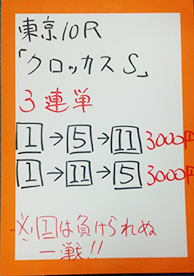 東京10R
「クロッカスS」
3連単
1→5→11 3000円
1→11→5 3000円
※1は負けられぬ
一戦!!